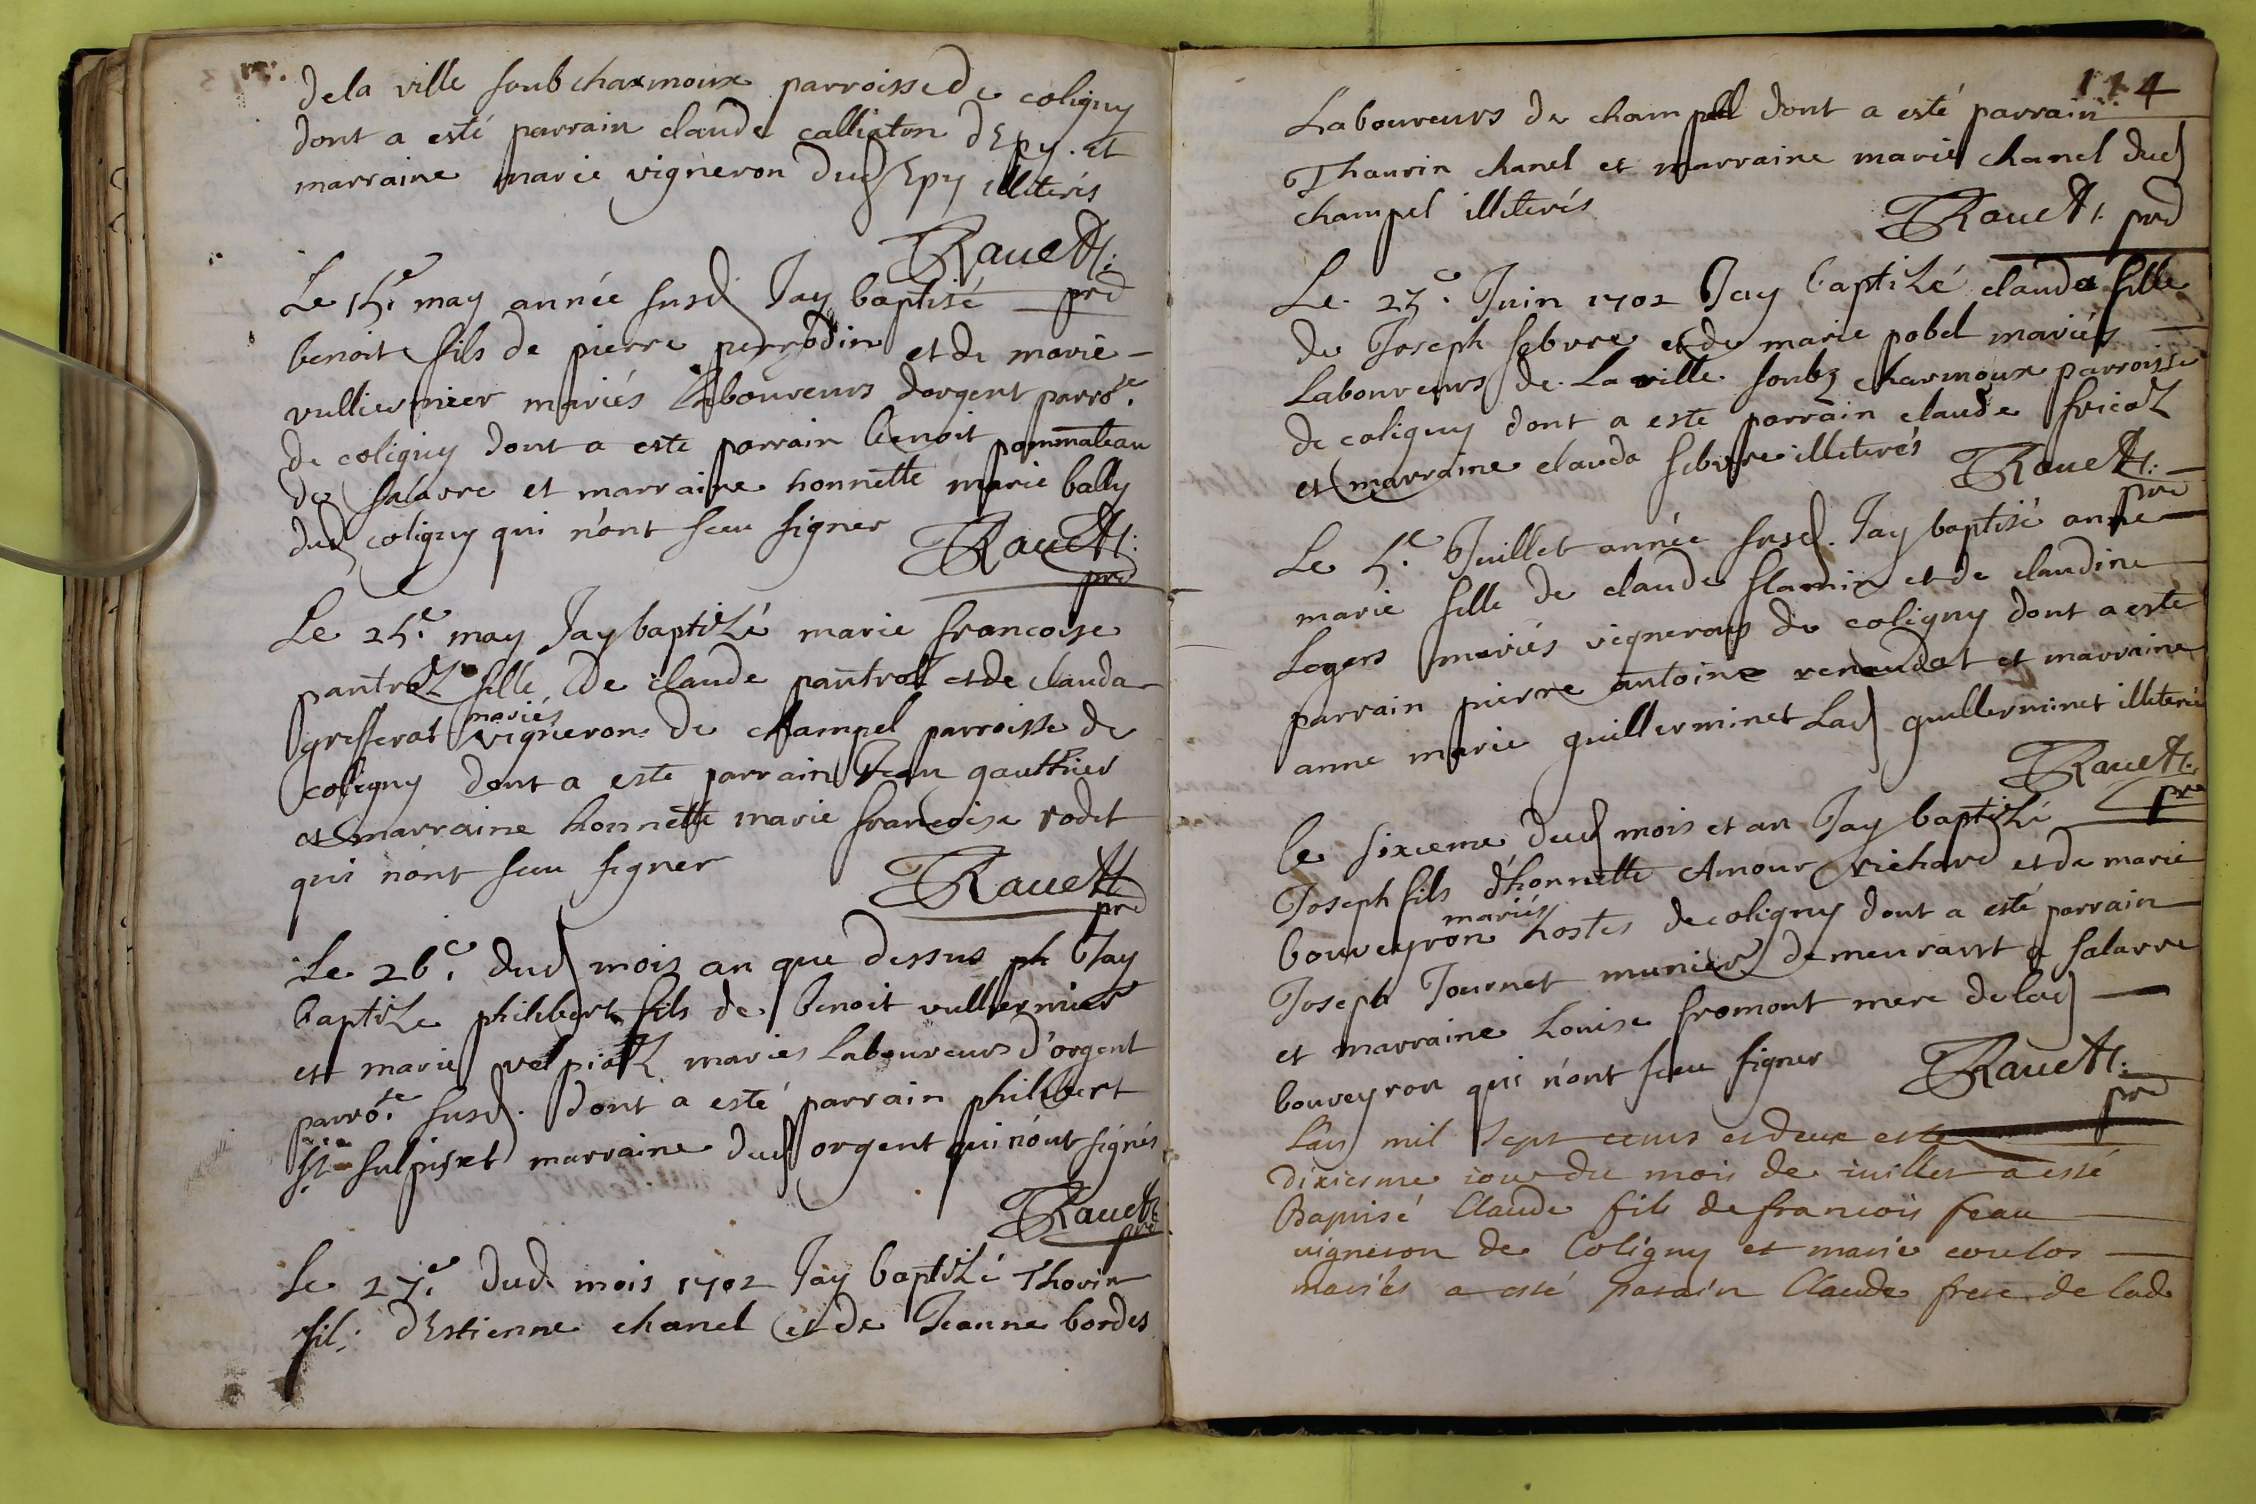 dela ville soubcharmoux parroisse de coligny
dont a esté parrain claude calliaton d'Epy. et
marraine marie vigneron dud Epy illiterés
Ravett:
prê
Le 15.e may année susd Jay baptisé
benoit fils de pierre perrodin et de marie -
vulliermier mariés Laboureurs dorgent parro.e
de coligny dont a este parrain benoit pommateau
de salavre et marraine honnette marie bally
dud coligny qui n'ont sceu signer
Ravett:
prê
Le 25.e may Jay baptizé marie francoise
pantroz fille de claude pantroz et de clauda
grefferat mariés vignerons de champel parroisse de
coligny dont a este parrain Jean gauthier
et marraine honnette marie francoise rodet
qui nont sceu signer
Ravett
prê
Le 26.e dud mois an que dessus ph Jay
baptize philibert fils de benoit vulliermier
et marie velpioz mariés Laboureurs d'orgent
parro.e susd. dont a esté parrain philibert
et marraine dud orgent qui n'ont signés
Ravett
prê
Le 27.e dud. mois 1702 Jay baptizé Thorin
fil: d'Estienne chanel et de Jeanne bordes
114
Laboureurs de champel dont a esté parrain
Thaurin chanel et marraine marie chanel dud
champel illiterés
Ravett. prê
Le. 25.e Juin 1702 Jay baptizé clauda fille
de Joseph febvre et de marie pobel mariés
Laboureurs de La ville soubz charmoux parroisse
de coligny dont a este parrain claude fricoz
et marraine clauda febvre illiterés
Ravett:
prê
Le 5.e Juillet année susd. Jay baptisé anne
marie fille de claude flamin et de claudine
Logers mariés vignerons de coligny dont a este
parrain pierre antoine renaudat et marraine
anne marie guillerminet Lad guillerminet illiterée
Ravett.
prê
le sixieme dud mois et an Jay baptizé
Joseph fils d'honnette Amour richard et de marie
bouveyron mariés hostes de coligny dont a esté parrain
Joseph Journet munier demeurant a salavre
et marraine Louise fromont mere delad
bouveyron qui n'ont sceu signer
Ravett:
prê
Lan mil sept cents et deux et le
dixiesme iour du mois de iuillet a esté
Baptisé Claude fils de francois feau
vigneron de Coligny et marie coulos
mariés a esté parain Claude frere de lad